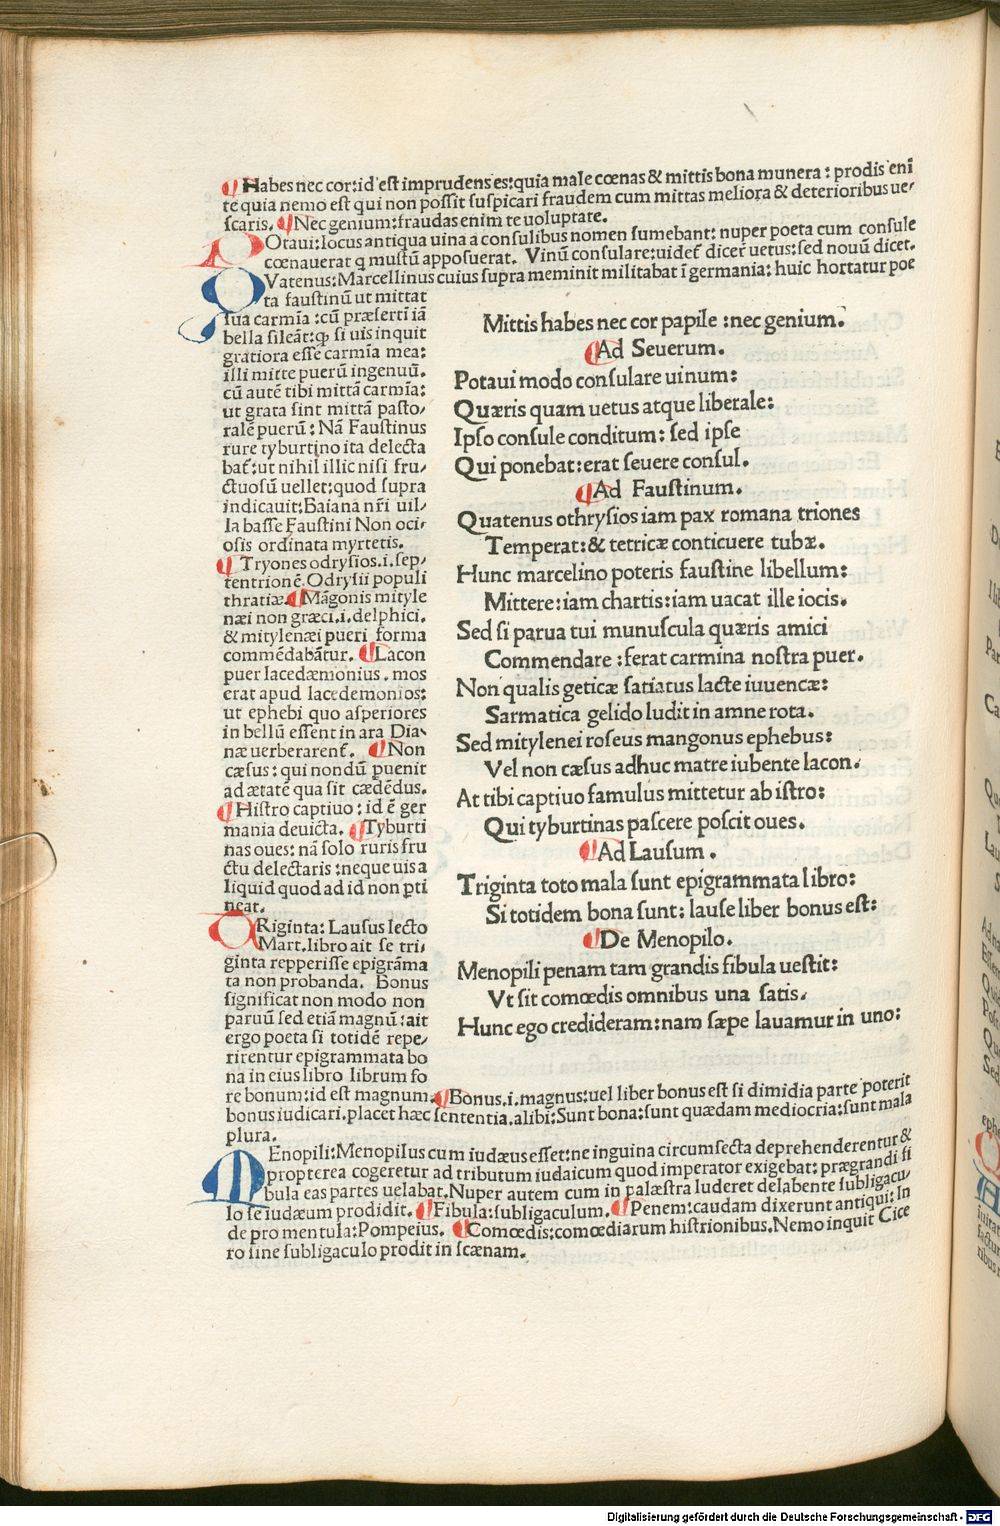 ¶ Habes nec cor:id eſt imprudens es:quia male cœnas & mittis bona munera : prodis enī
te quia nemo eſt qui non poſſit ſuſpicari fraudem cum mittas meliora & deterioribus ue⸗
ſcaris. ¶ Nec genium:fraudas enim te uoluptate.
POtaui:locus antiqua uina a conſulibus nomen ſumebant: nuper poeta cum conſule
cœnauerat q muſtū appoſuerat. Vinū conſulare:uideſ dicer̄ uetus:ſed nouū dicet.
QVatenus:Marcellinus cuius ſupra meminit militabat ī germania: huic hortatur poe
ta fauſtinū ut mittat
ſua carmīa :cū præſerti iā
bella ſileāt:ꝙ ſi uis inquit
gratiora eſſe carmīa mea:
illi mitte puerū ingenuū.
cū autē tibi mittā carmīa:
ut grata ſint mittā paſto⸗
ralē puerū : Nā Fauſtinus
rure tyburtino ita delecta
baſ:ut nihil illic niſi fru⸗
ctuoſū uellet:quod ſupra
indicauit: Baiana nr̄i uil⸗
la baſſe Fauſtini Non oci⸗
oſis ordinata myrtetis.
¶ Tryones odryſios.i.ſep⸗
tentrionē. Odryſii populi
thratiæ. ¶ Māgonis mityle
næi non græci.i.delphici.
& mitylenæi pueri forma
commēdabātur. ¶ Lacon
puer lacedæmonius. mos
erat apud lacedemonios:
ut ephebi quo aſperiores
in bellū eſſent in ara Dia⸗
næ uerberarenſ. ¶ Non
cæſus : qui nondū puenit
ad ætatē qua ſit cædēdus.
¶ Hiſtro captiuo : id ē ger
mania deuicta. ¶ Tyburti
nas oues: nā ſolo ruris fru
ctu delectaris :neque uis a
liquid quod ad id non ꝑti
neat.
TRiginta: Lauſus lecto
Mart.libro ait ſe tri⸗
ginta repperiſſe epigrāma
ta non probanda. Bonus
ſignificat non modo non
paruū ſed etiā magnū : ait
ergo poeta ſi totidē repe⸗
rirentur epigrammata bo
na in eius libro librum fo
re bonum: id eſt magnum. ¶ Bonus.i.magnus:uel liber bonus eſt ſi dimidia parte poterit
bonus iudicari. placet hæc ſententia. alibi: Sunt bona: ſunt quædam mediocria: ſunt mala
plura.
MEnopili: Menopilus cum iudæus eſſet:ne inguina circumſecta deprehenderentur &
propterea cogeretur ad tributum iudaicum quod imperator exigebat: prægrandi fi
bula eas partes uelabat. Nuper autem cum in palæſtra luderet delabente ſubligacu⸗
lo ſe iudæum prodidit. ¶ Fibula: ſubligaculum. ¶ Penem: caudam dixerunt antiqui: In
de pro mentula: Pompeius. ¶ Comœdis: comœdiarum hiſtrionibus. Nemo inquit Cice
ro ſine ſubligaculo prodit in ſcænam.
Mittis habes nec cor papile : nec genium.
¶ Ad Seuerum.
Potaui modo conſulare uinum:
Quæris quam uetus atque liberale:
Ipſo conſule conditum: ſed ipſe
Qui ponebat: erat ſeuere conſul.
¶ Ad Fauſtinum.
Quatenus othryſios iam pax romana triones
Temperat: & tetricæ conticuere tubæ.
Hunc marcelino poteris fauſtine libellum:
Mittere: iam chartis: iam uacat ille iocis.
Sed ſi parua tui munuſcula quæris amici
Commendare : ferat carmina noſtra puer.
Non qualis geticæ ſatiatus lacte iuuencæ:
Sarmatica gelido ludit in amne rota.
Sed mitylenei roſeus mangonus ephebus:
Vel non cæſus adhuc matre iubente lacon.
At tibi captiuo famulus mittetur ab iſtro:
Qui tyburtinas paſcere poſcit oues.
¶ Ad Lauſum .
Triginta toto mala ſunt epigrammata libro:
Si totidem bona ſunt: lauſe liber bonus eſt:
¶ De Menopilo.
Menopili penam tam grandis fibula ueſtit:
Vt ſit comœdis omnibus una ſatis.
Hunc ego credideram: nam ſæpe lauamur in uno:
Digitalisierung gefördert durch die Deutsche Forschungsgemeinschaft - DFG